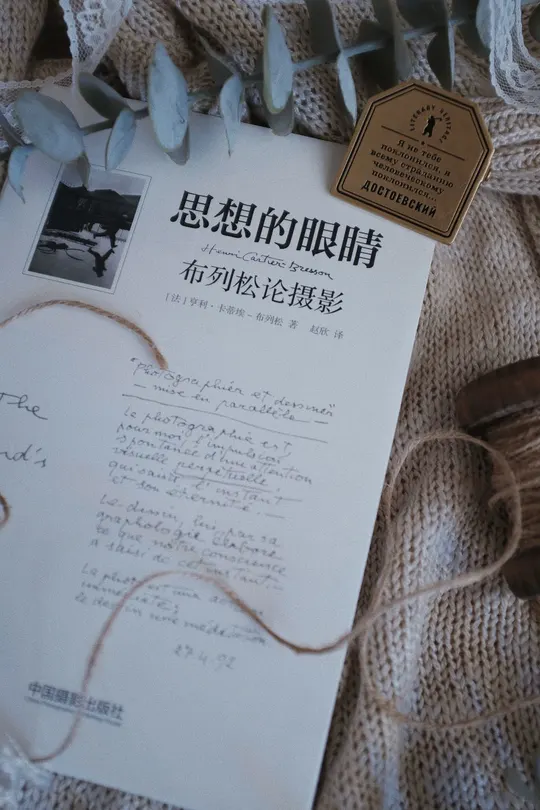 思想的眼睛
Henri Cartier-Bresson
布列松论摄影
［法］亨利·卡蒂埃-布列松 著 赵欣 译
LITERARY
Я не тебе
поклонился, я
всему страданию
человеческому
поклонился...
ДОСТОЕВСКИЙ
The
nd's
"Photographier et dessiner"
— mise en parallèle —
La photographie est,
pour moi, l'impulsion
spontanée d'une attention
visuelle perpetuelle,
qui saisit l'instant
et son éternité. —
Le dessin, lui par sa
graphologie élabore
ce que notre conscience
a saisi de cet instant. —
La photo est une action
immédiate;
le dessin une méditation
27.4.92
中国摄影出版社